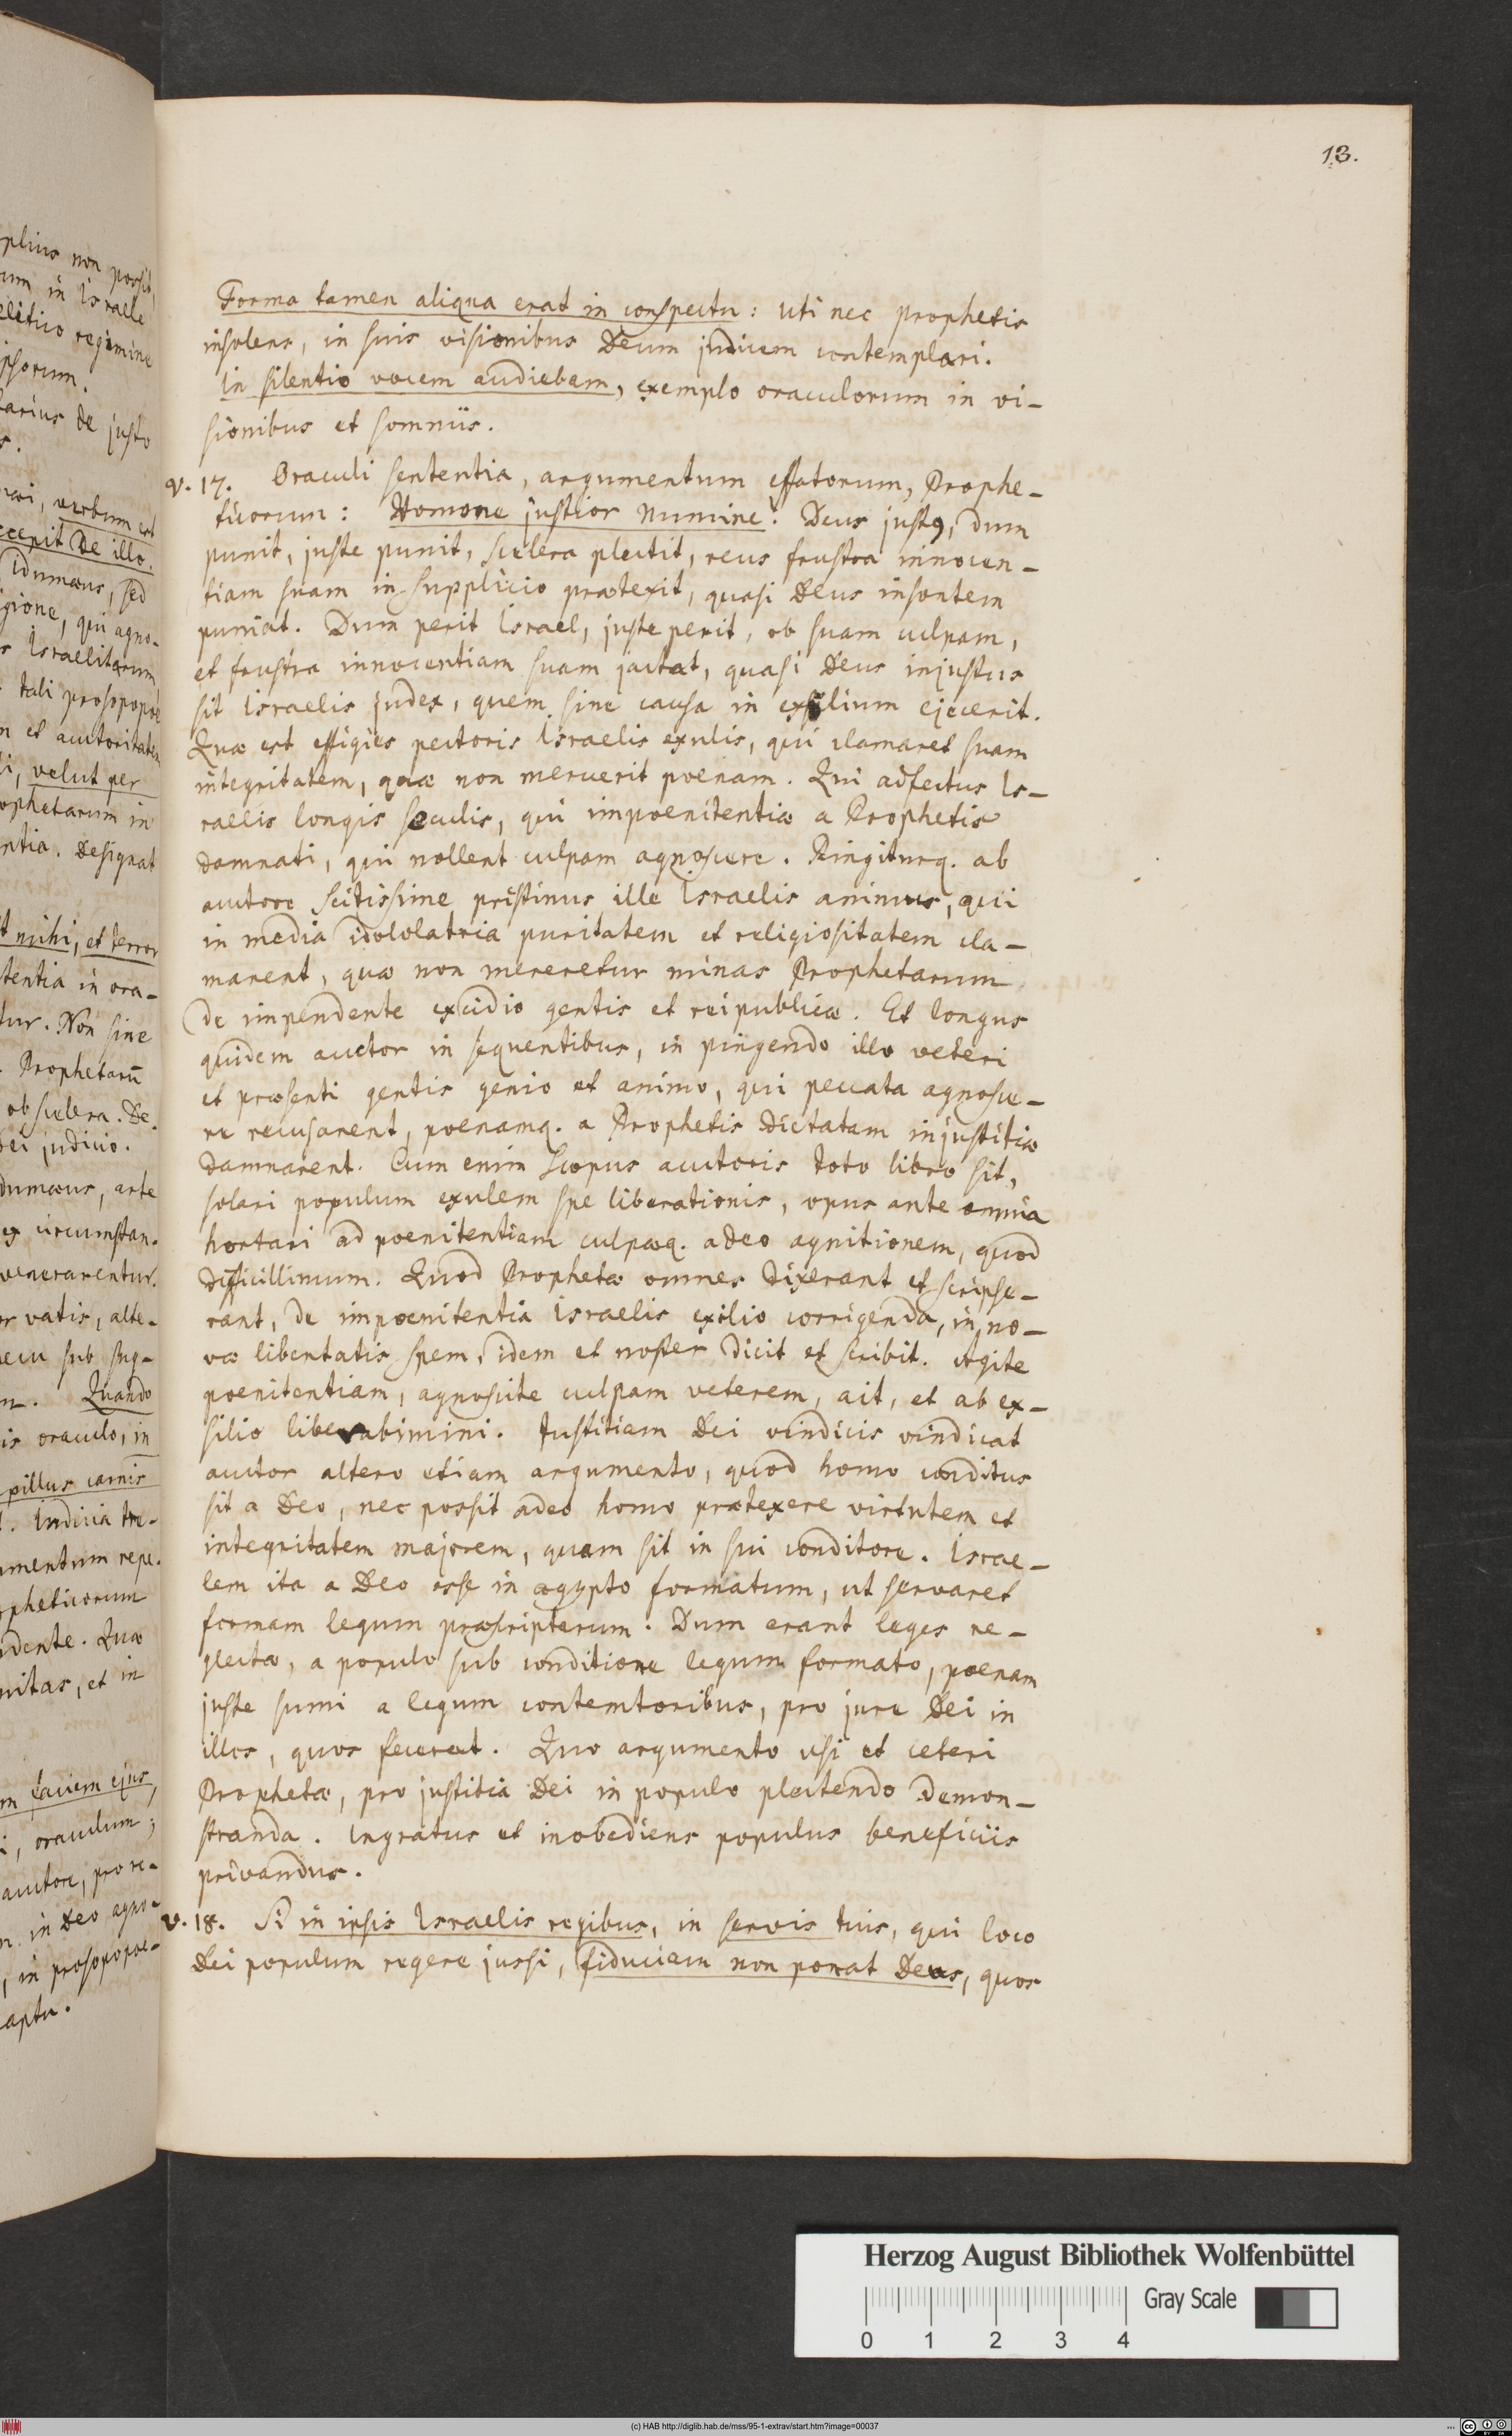 13.
Forma tamen aliqua erat in conspectu: uti nec prophetis
insolens, in suis visionibus Deum judicem contemplari.
In silentio vocem audiebam, exemplo oraculorum in vi-
sionibus et somniis.
v. 17. Oraculi sententia, argumentum effatorum, Prophe-
ticorum: Homone justior Numine? Deus justus, dum
punit, juste punit, scelera plectit, reus frustra innocen-
tiam suam in supplicio prætexit, quasi Deus insontem
puniat. Dum perit Israel, juste perit, ob suam culpam,
et frustra innocentiam suam jactat, quasi Deus injustus
sit Israelis judex, quem sine causa in exsilium ejecerit.
Quæ est effigies pectoris Israelis exulis, qui clamaret suam
integritatem, quæ non meruerit poenam. Qui adfectus Is-
raelis longis seculis, qui impoenitentiæ a Prophetis
damnati, qui nollent culpam agnoscere. Pingiturq. ab
auctore scitissime pristinus ille Israelis animus, qui
in media idololatria puritatem et religiositatem cla-
marent, quæ non mereretur minas Prophetarum
de impendente excidio gentis et reipublicæ. Et longus
quidem auctor in sequentibus, in pingendo illo veteri
et præsenti gentis genio et animo, qui peccata agnosce-
re recusarent, poenamq. a Prophetis dictatam injustitiæ
damnarent. Cum enim scopus auctoris toto libro sit,
solari populum exulem spe liberationis, opus ante omnia
hortari ad poenitentiam culpæq. adeo agnitionem, quod
difficillimum. Quod Prophetæ omnes dixerant et scripse-
rant, de impoenitentia Israelis exilio corrigenda, in no-
væ libertatis spem, idem et noster dicit et scribit. Agite
poenitentiam, agnoscite culpam veterem, ait, et ab ex-
silio liberabimini. Justitiam Dei vindicis vindicat
auctor altero etiam argumento, quod homo conditus
sit a Deo, nec possit adeo homo prætexere virtutem et
integritatem majorem, quam sit in sui conditore. Israe-
lem ita a Deo esse in ægypto formatum, ut servaret
formam legum præscriptarum. Dum erant leges ne-
glectæ, a populo sub conditione legum formato, poenam
juste sumi a legum contemtoribus, pro jure Dei in
illos, quos fecerat. Quo argumento usi et ceteri
Prophetæ, pro justitia Dei in populo plectendo demon-
stranda. Ingratus et inobediens populus beneficiis
privandus.
v. 18. Si in ipsis Israelis regibus, in servis tuis, qui loco
Dei populum regere jussi, fiduciam non ponat Deus, quos
Herzog August Bibliothek Wolfenbüttel
Gray Scale
0 1 2 3 4
(c) HAB http://diglib.hab.de/mss/95-1-extrav/start.htm?image=00037